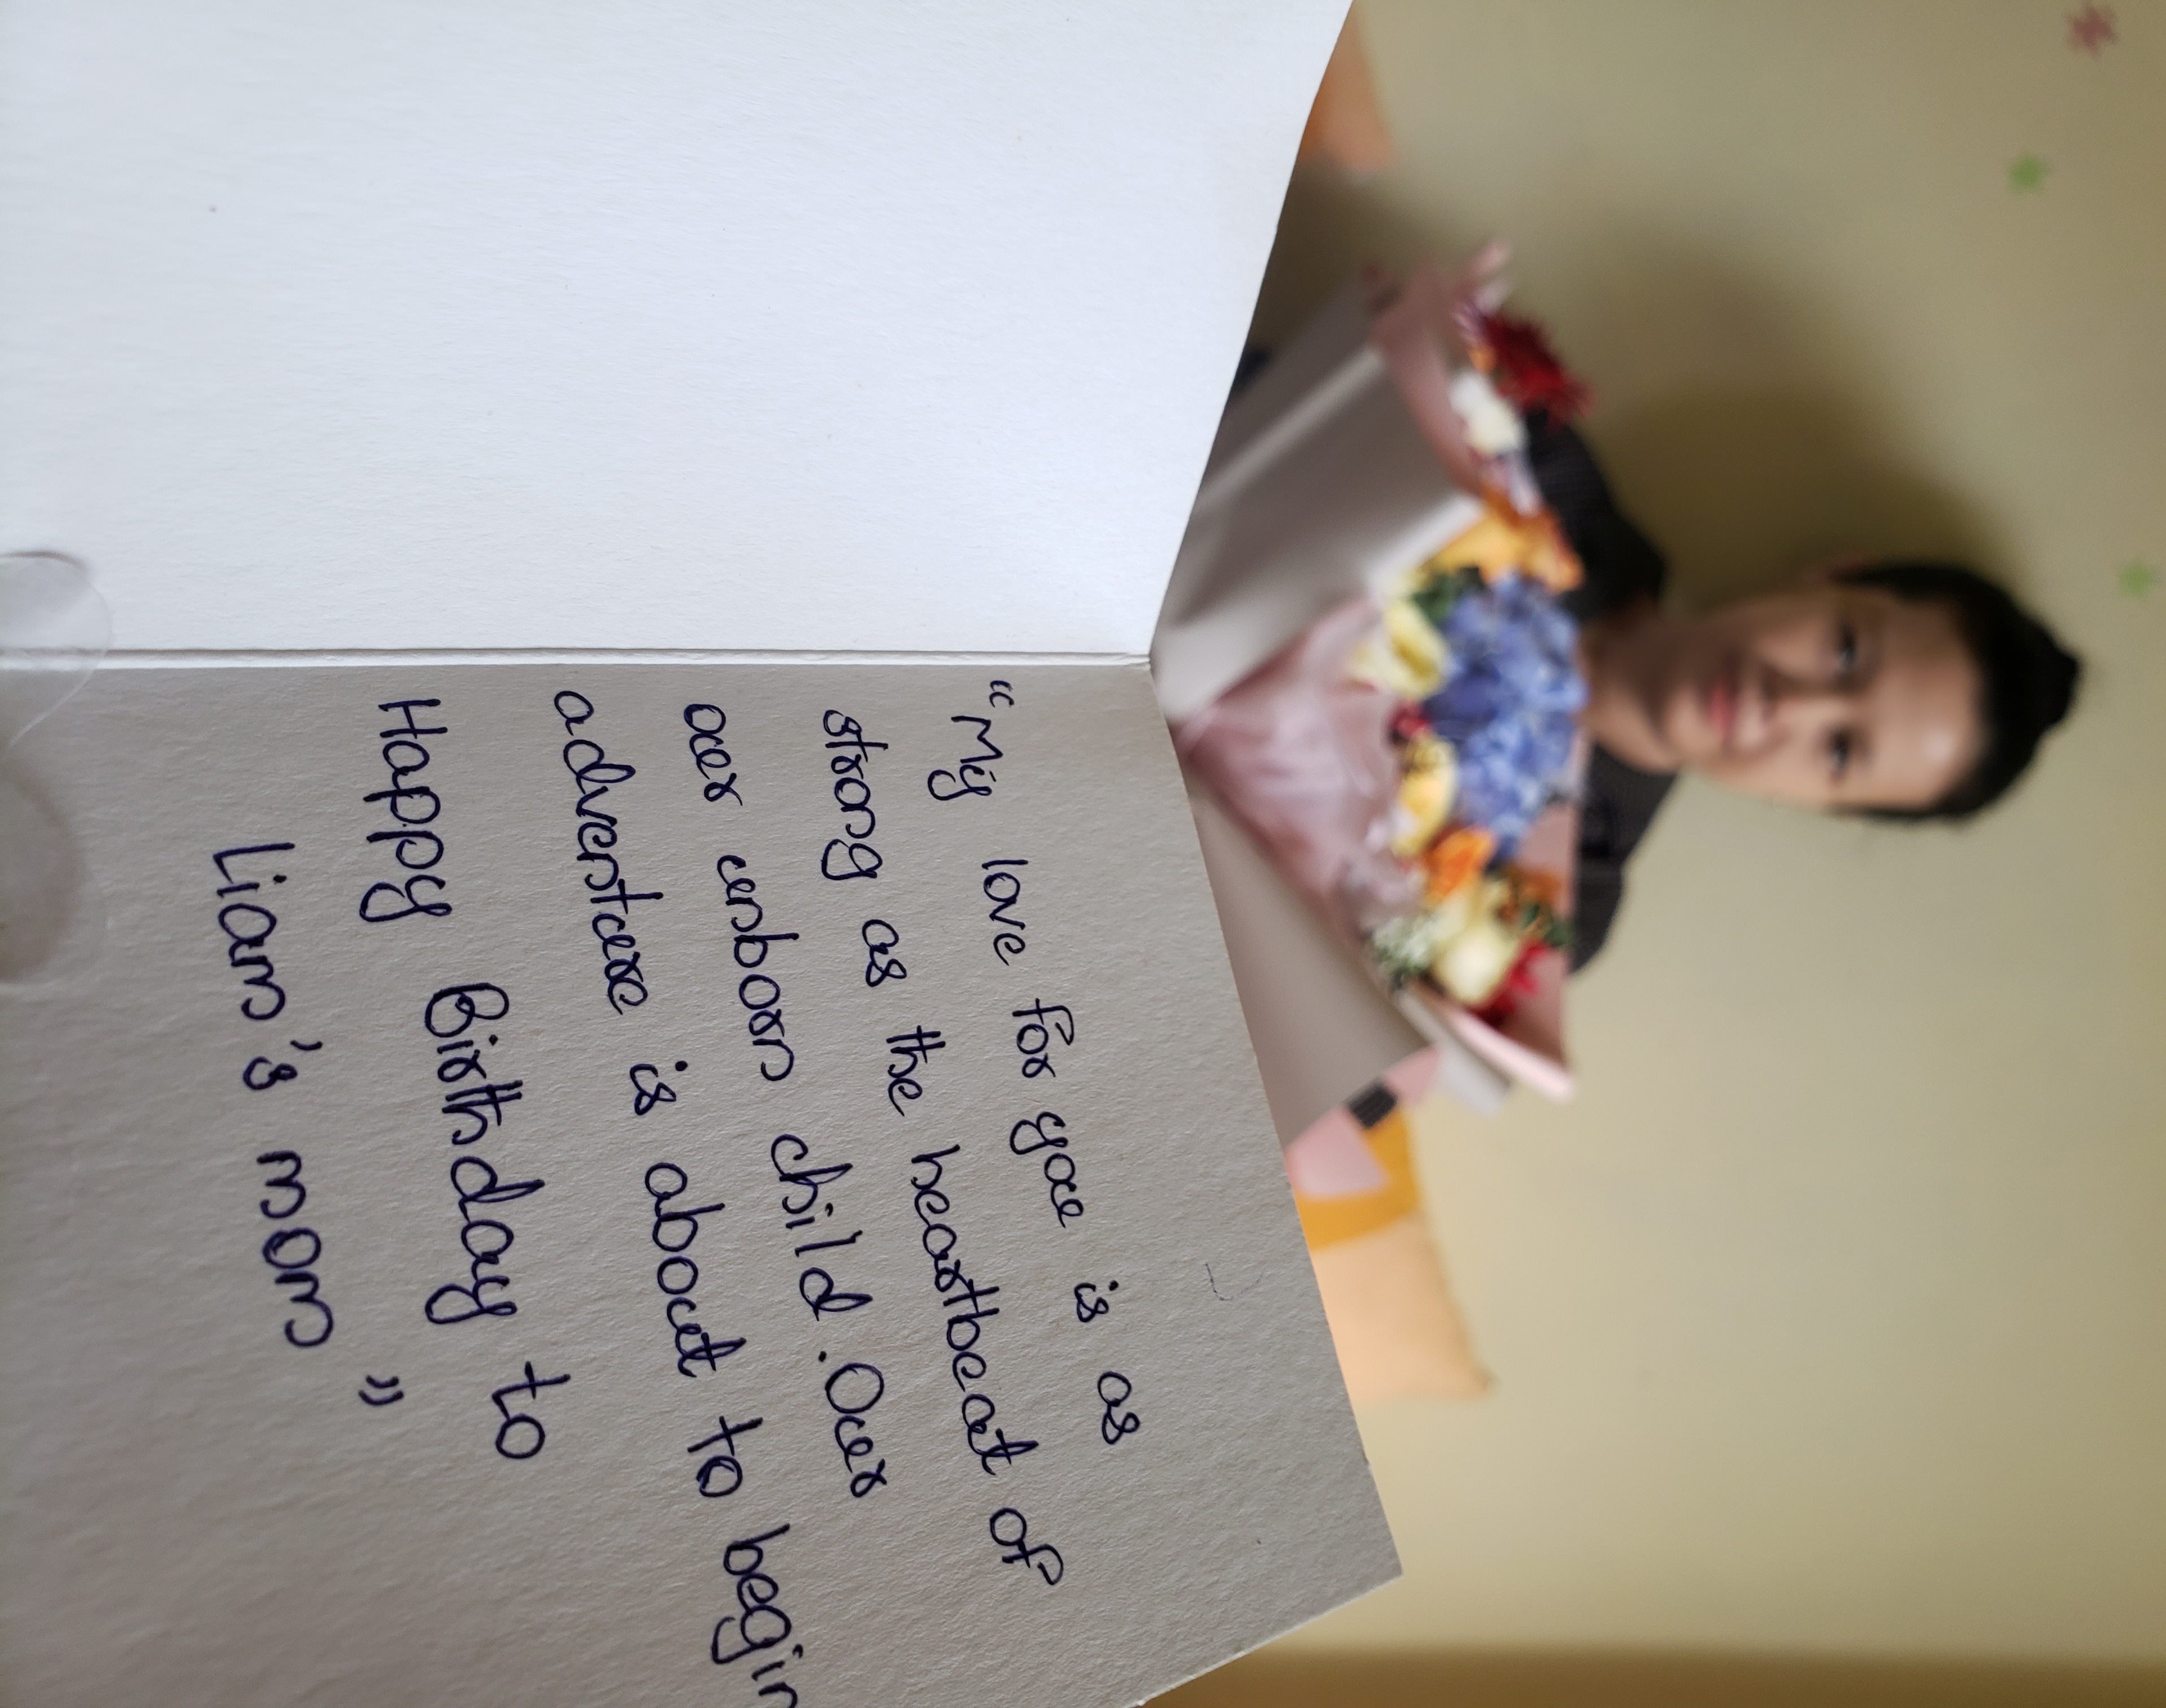 "My love for you is as
strong as the heartbeat of
our unborn child. Our
adventure is about to begin
Happy Birthday to
Liam's mom"